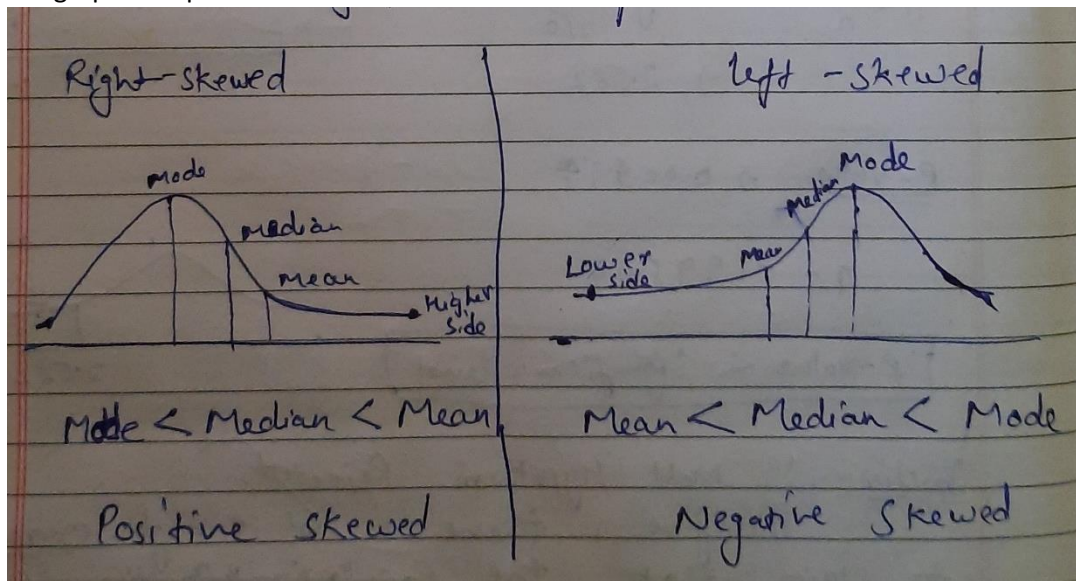 Right-skewed
Mode
Median
Mean
Higher
side
Mode < Median < Mean
Positive Skewed
left - skewed
Mode
Median
Mean
Lower
side
Mean < Median < Mode
Negative Skewed